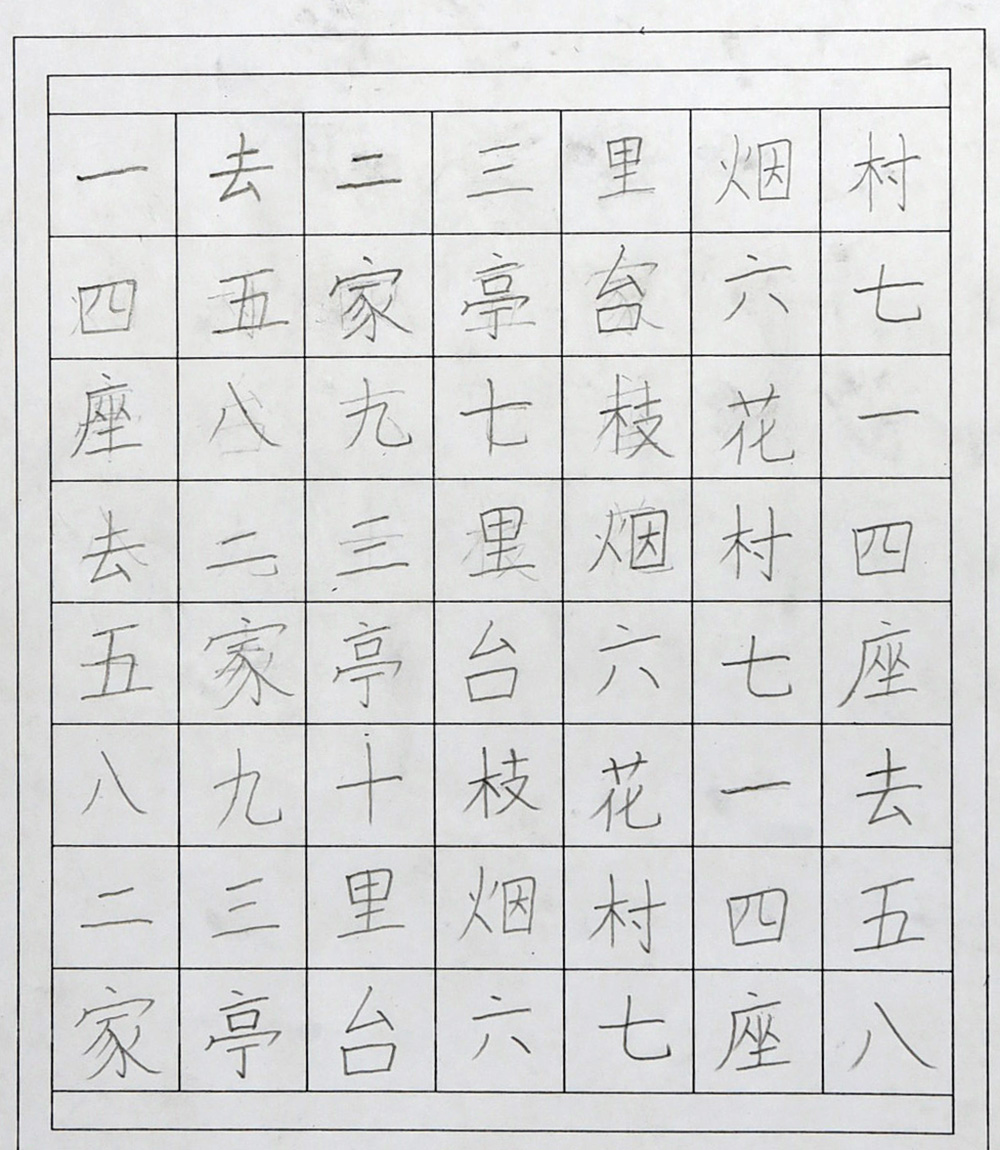 一去二三里烟村
四五家亭台六七
座八九七枝花一
去二三里烟村四
五家亭台六七座
八九十枝花一去
二三里烟村四五
家亭台六七座八